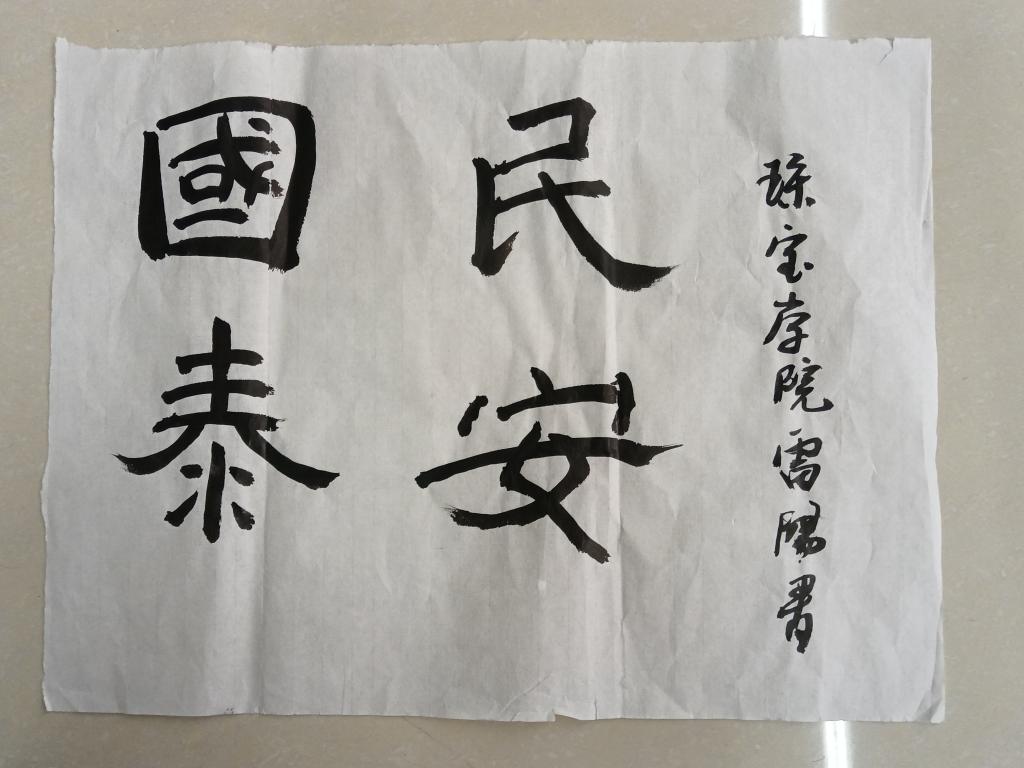 國泰
民安
珠宝学院雷陽書